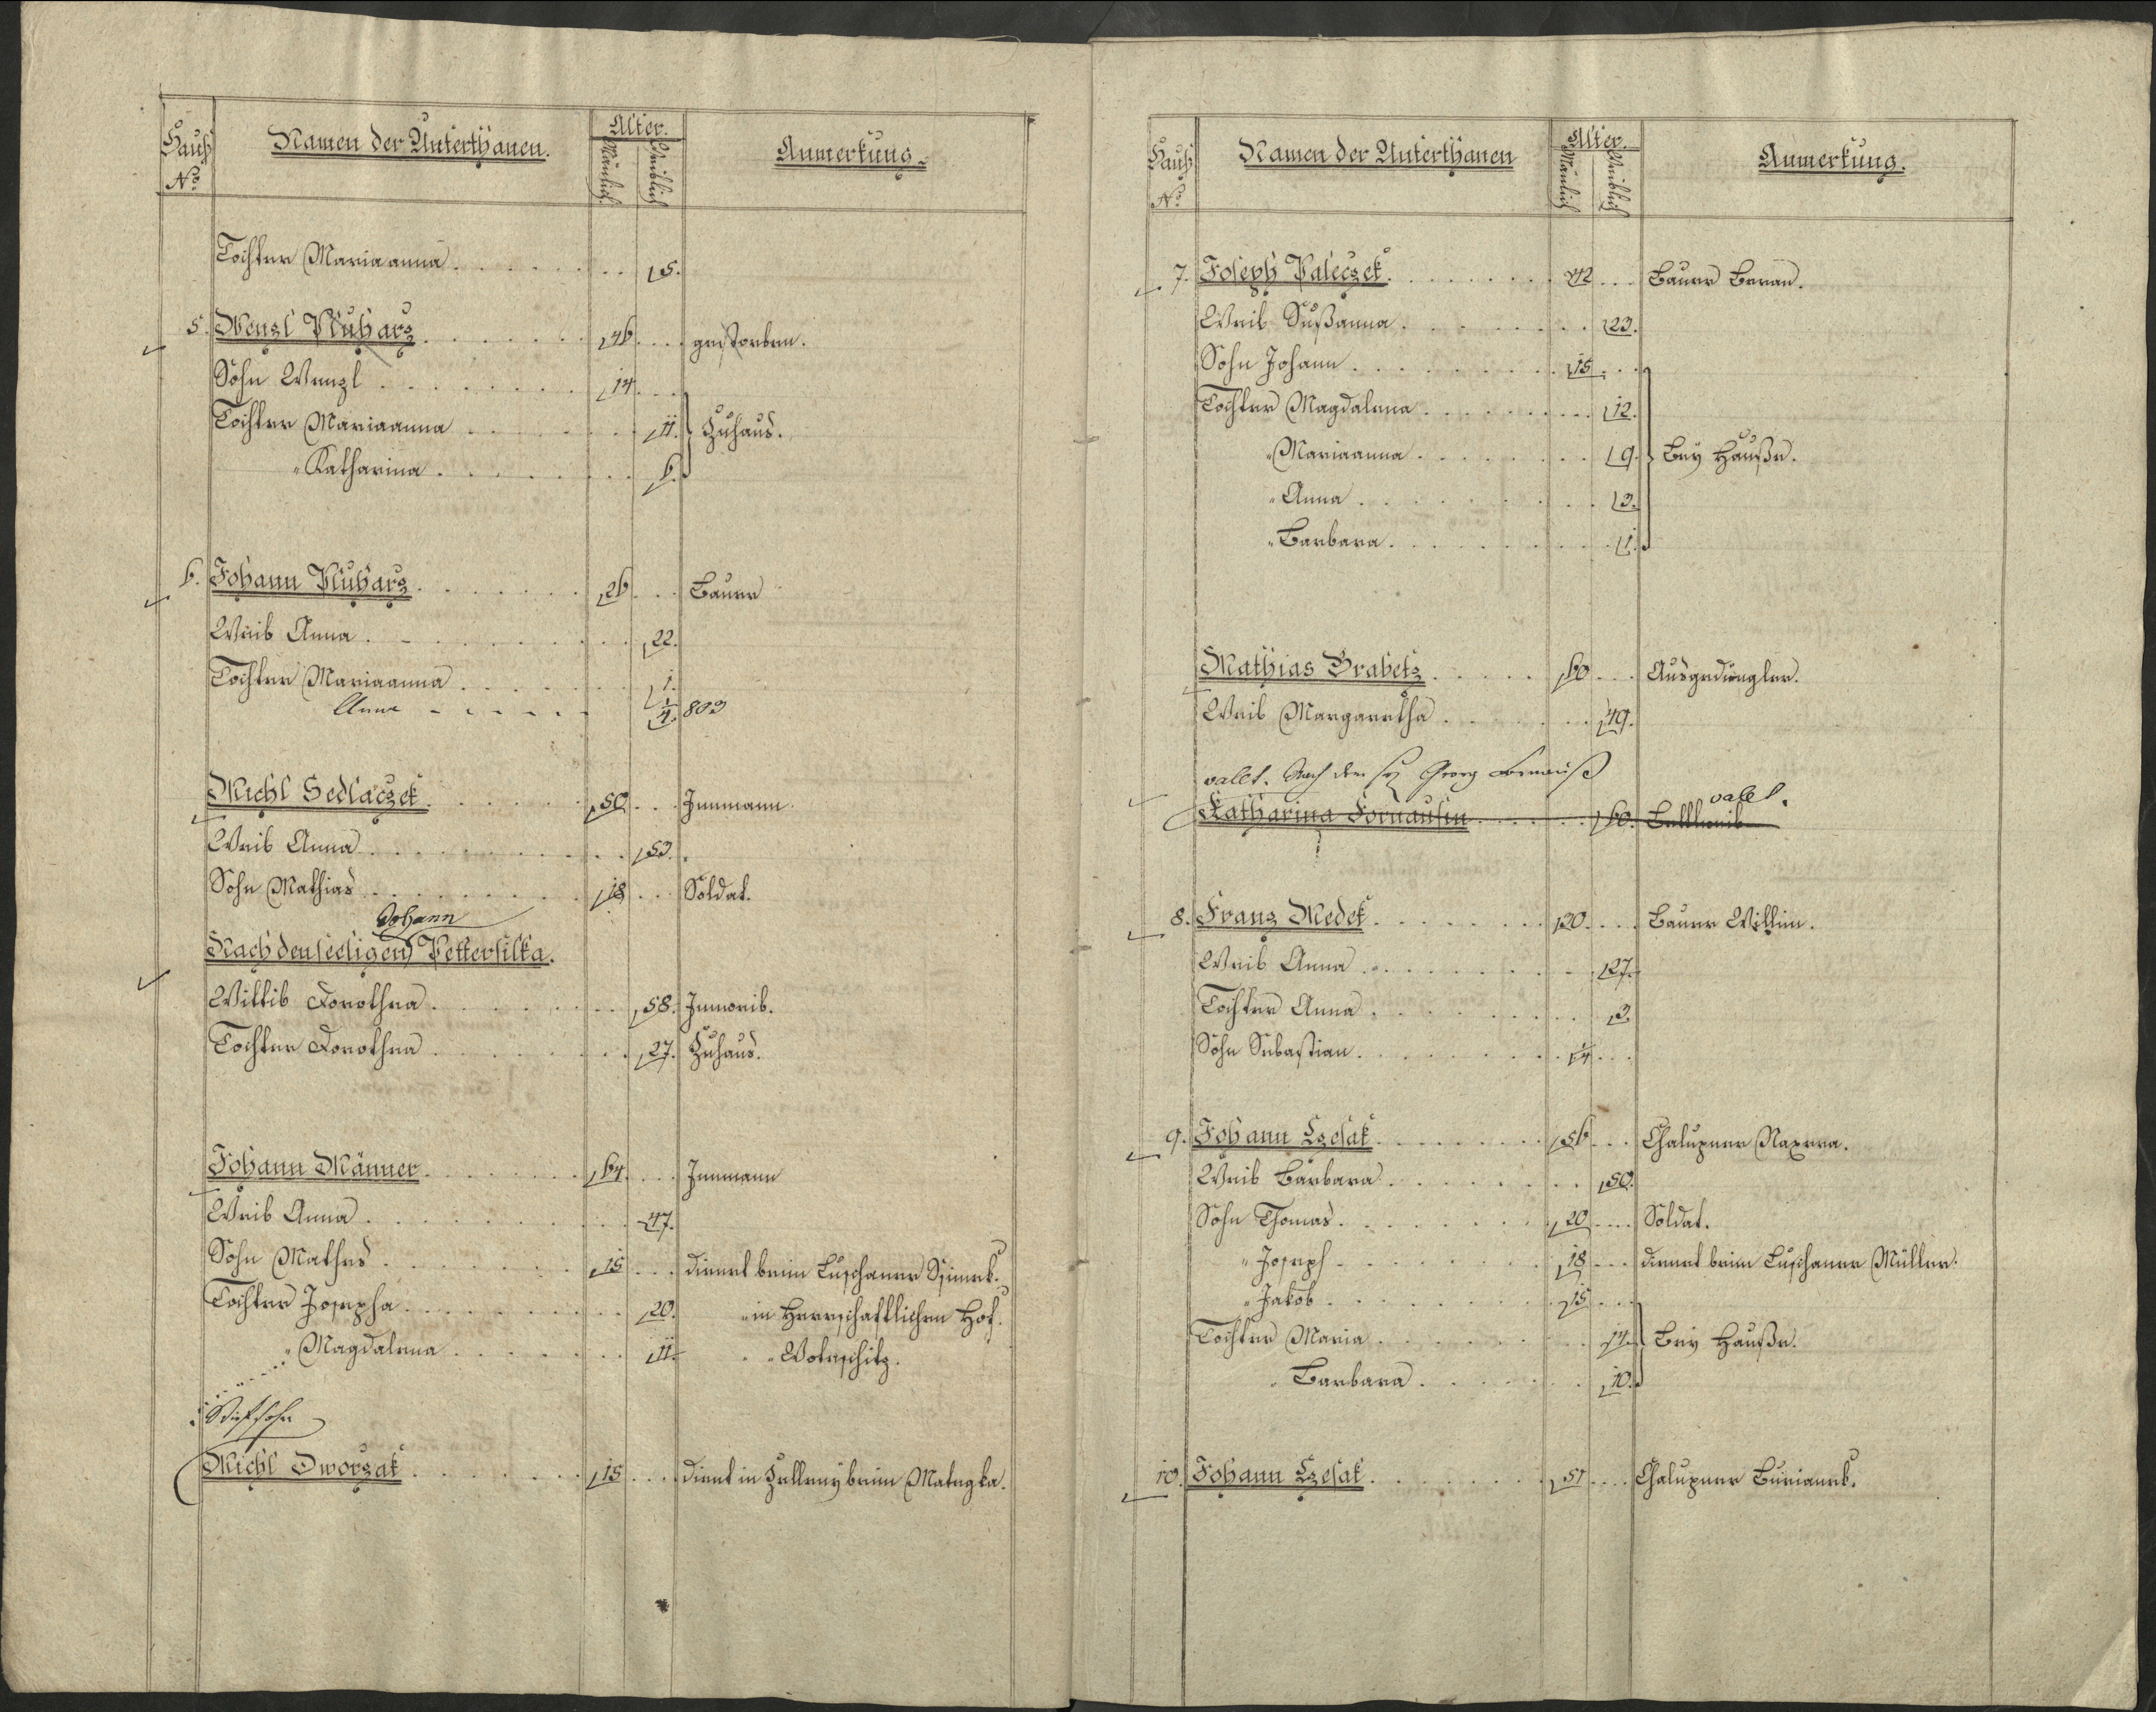 Hauß No
Namen der Unterthanen.
Alter.
Mänlich
Weiblich
Anmerkung.
Tochter Mariaanna . . . . . . 5.
5. Wenzl Pluharz . . . . . . 46 . . . gestorben.
Sohn Wenzl . . . . . . 14 . . .
Tochter Mariaanna . . . . . . 11. Zuhaus.
" Katharina . . . . . . 6.
6. Johann Pluharz . . . . . . 26 . . . Bauer
Weib Anna . . . . . . 22.
Tochter Mariaanna . . . . . . 1.
Anna - - - - - 1/4. 803
Michl Sedlaczek . . . . . . 50 . . . Innmann.
Weib Anna . . . . . . 53.
Sohn Mathias . . . . . . 18 . . . Soldat.
Johann
Nach den seeligen Pettersilka.
Wittib Dorothea . . . . . . 58. Innweib.
Tochter Dorothea . . . . . . 27. Zuhaus.
Johann Männer . . . . . . 64 . . . Innmann
Weib Anna . . . . . . 47.
Sohn Mathes . . . . . . 15 . . . dienet beim Luschaner
Tochter Josepha . . . . . . 20. " in Herrschaftlichen Hof.
" Magdalena . . . . . . 11. " " Woleschitz.
Stiefsohn
Michl Dworzak . . . . . . 15 . . . dient in beim
Hauß No
Namen der Unterthanen
Alter.
Mänlich
Weiblich
Anmerkung.
7. Joseph Paleczek . . . . . . 42 . . . Bauer Beran.
Weib Sußanna . . . . . . 23.
Sohn Johann . . . . . . 15 . . .
Tochter Magdalena . . . . . . 12.
" Mariaanna . . . . . . 9. Bey Hauße.
" Anna . . . . . . 3.
" Barbara . . . . . . 1.
Mathias Brabetz . . . . . . 60 . . . Ausgedingler.
Weib Margaretha . . . . . . 49.
valet. Nach dem Georg
Katharina Fornausin . . . . . . 60. Bettlweib valet.
8. Franz Medek . . . . . . 30 . . . Bauer Willim.
Weib Anna . . . . . . 27.
Tochter Anna . . . . . . 3.
Sohn Sebastian . . . . . . 1/4 . . .
9. Johann Czesak . . . . . . 56 . . . Chalupner Naxera.
Weib Barbara . . . . . . 50.
Sohn Thomas . . . . . . 20 . . . Soldat.
" Joseph . . . . . . 18 . . . dienet beim Luschaner Müller.
" Jakob . . . . . . 15 . . .
Tochter Maria . . . . . . 14. Bey Hauße.
" Barbara . . . . . . 10.
10. Johann Czesak . . . . . . 51 . . . Chalupner Burianek.